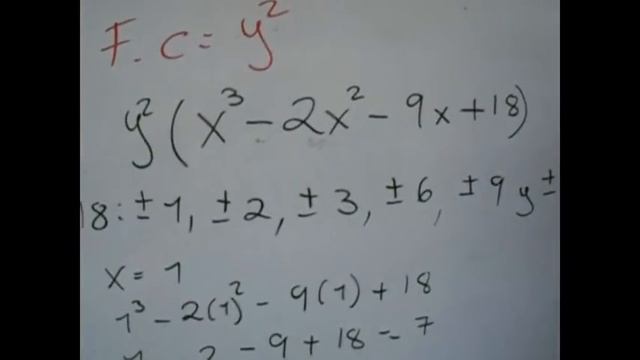 F.C = y²
y²(x³ - 2x² - 9x + 18)
18: ± 1, ± 2, ± 3, ± 6, ± 9 y ±
x = 1
1³ - 2(1)² - 9(1) + 18
2 - 9 + 18 = 7